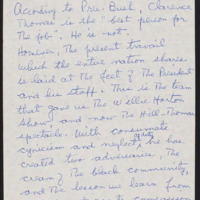 According to Pres. Bush, Clarence
Thomas is the "best person for
the job". He is not.
However, the present travail
which the entire nation shares
is laid at the feet of the President
and his staff. This is the team
that gave us the Willie Horton
show, and now the Hill-Thomas
spectacle. With consummate
cynicism and neglect, he has
created two adversaries, the
cream of the black community,
and the lesson we learn from
to compassion